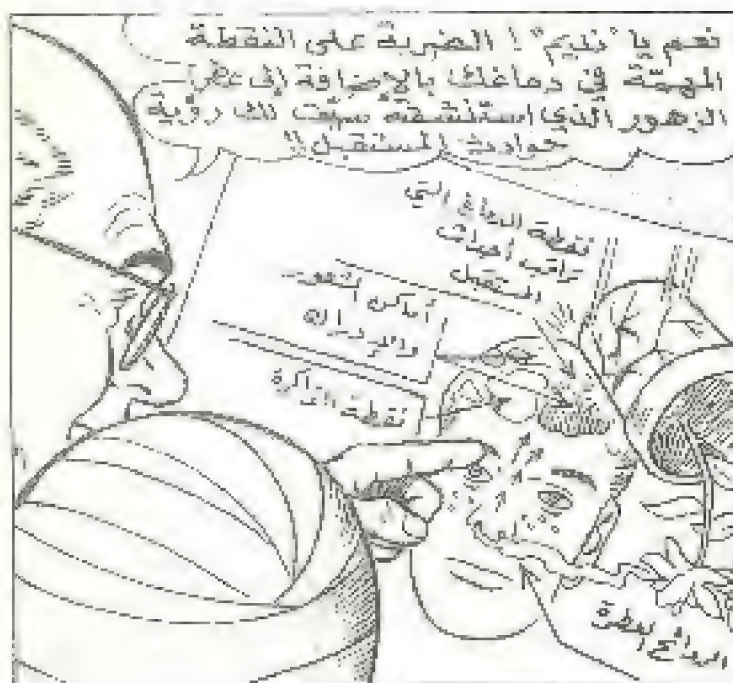 نعم يا "نديم"! الضربة على النقطة
المهمّة في دماغك بالإضافة إلى عطر
الزهور الذي استنشقته سبّبت لك رؤية
حوادث المستقبل!!
نقطة الدماغ التي
تراقب أحداث
المستقبل
أماكن الشعور
والإدراك
نقطة الذاكرة
الروائح العطرة